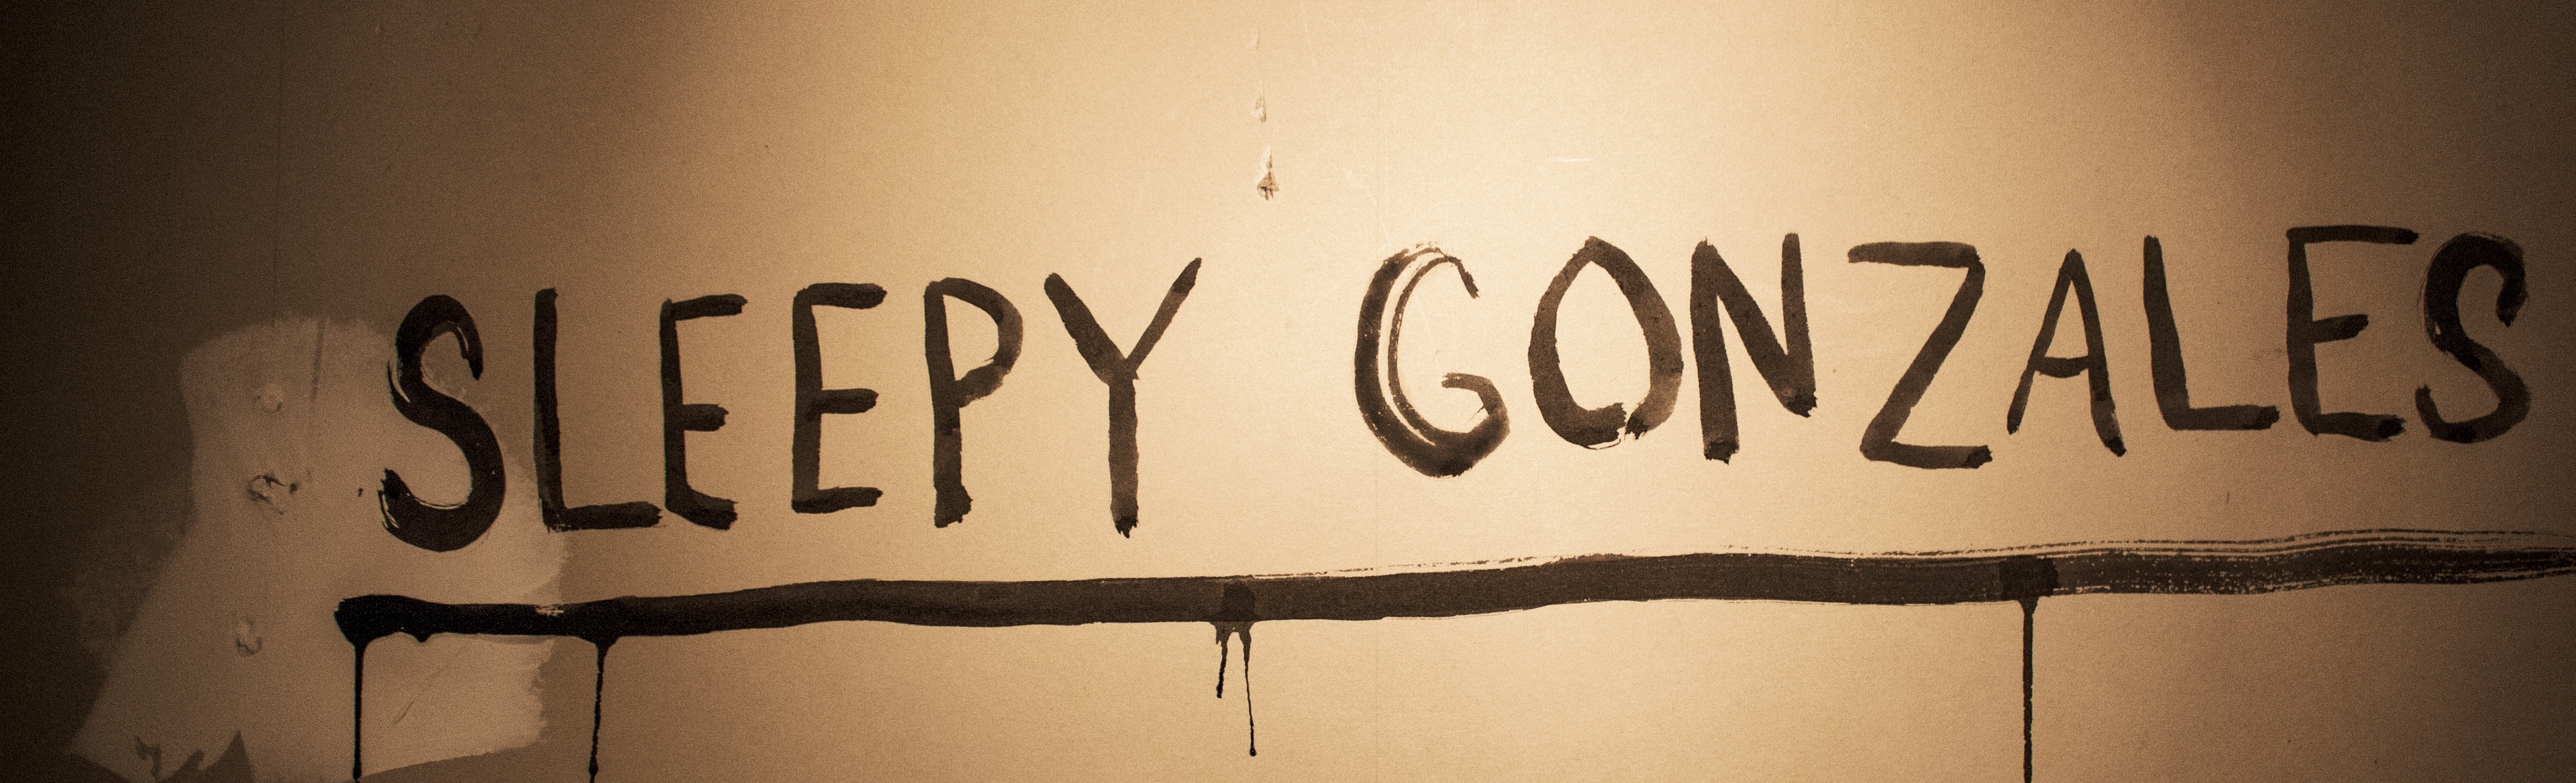 SLEEPY GONZALES